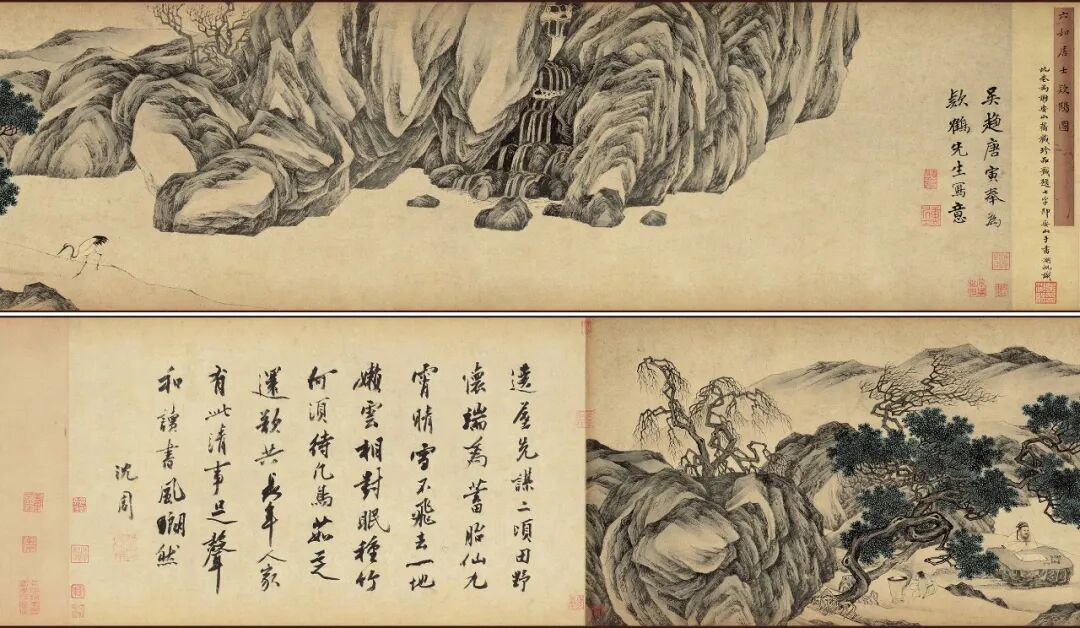 六如居士款鶴圖
此卷為謝安山舊藏珍品籤題七字即安山手書湖帆識
吳趨唐寅奉為
款鶴先生寫意
遶屋先謀二頃田野
懷端為蓄胎仙九
霄晴雪不飛去一地
嬾雲相對眠種竹
何須待凡馬茹芝
還共長年人家
有此清事足聲
和讀書風然
沈周